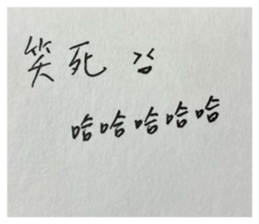 笑死
哈哈哈哈哈